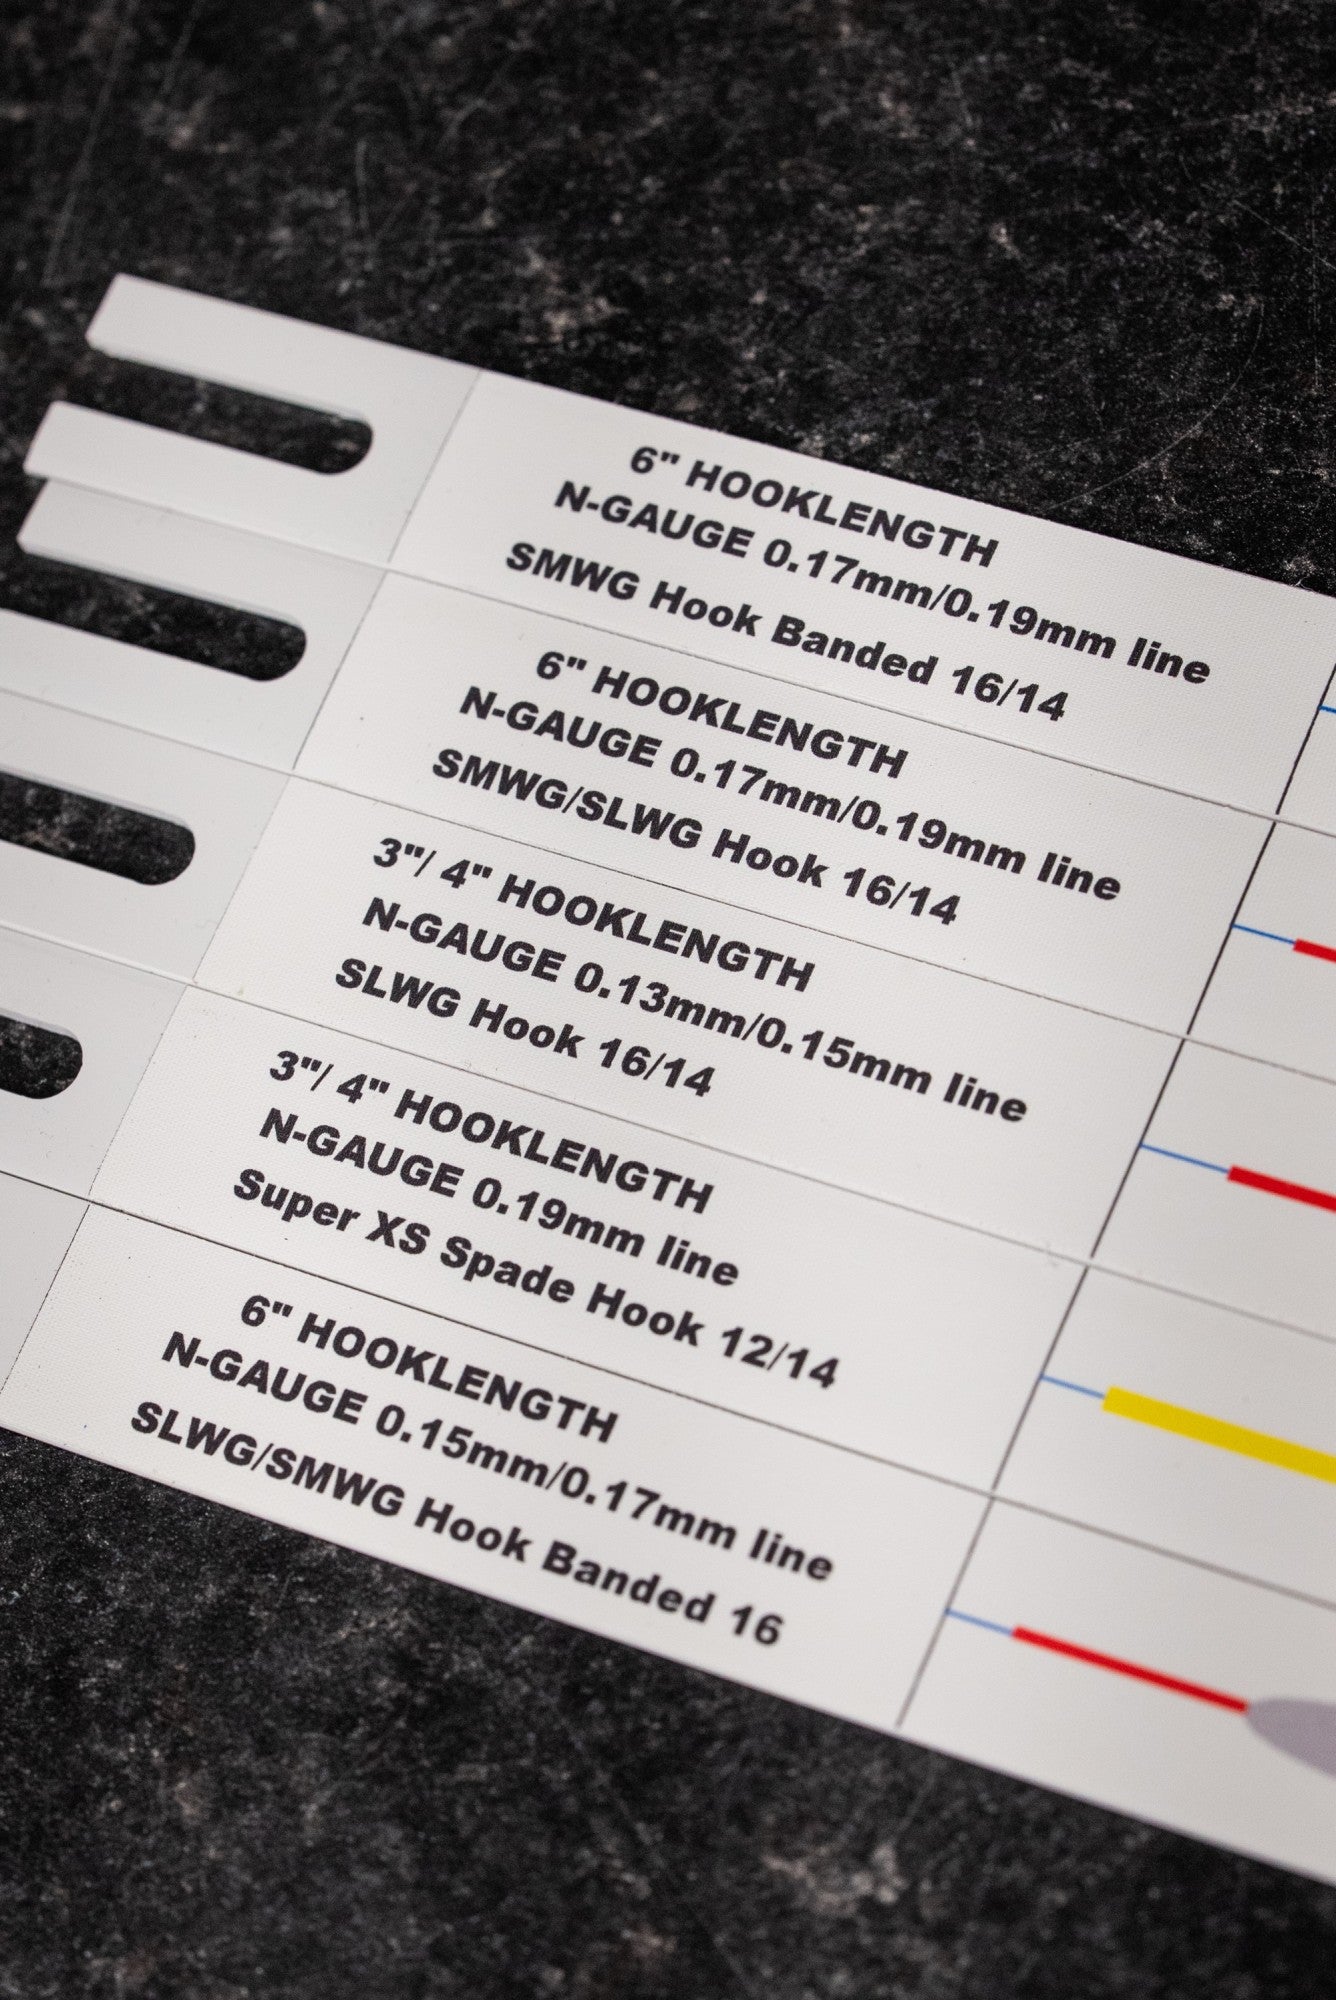 6" HOOKLENGTH
N-GAUGE 0.17mm/0.19mm line
SMWG Hook Banded 16/14
6" HOOKLENGTH
N-GAUGE 0.17mm/0.19mm line
SMWG/SLWG Hook 16/14
3"/ 4" HOOKLENGTH
N-GAUGE 0.13mm/0.15mm line
SLWG Hook 16/14
3"/ 4" HOOKLENGTH
N-GAUGE 0.19mm line
Super XS Spade Hook 12/14
6" HOOKLENGTH
N-GAUGE 0.15mm/0.17mm line
SLWG/SMWG Hook Banded 16